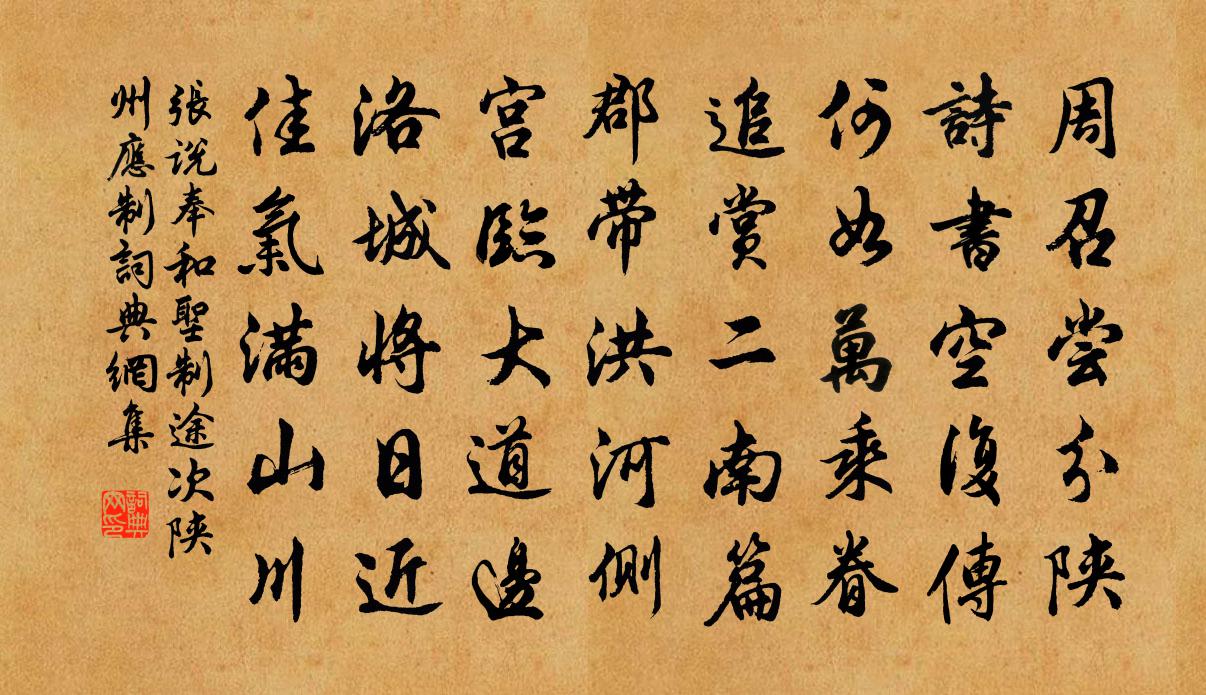 周召嘗分陝
詩書空復傳
何如萬乘眷
追賞二南篇
郡帶洪河側
宮臨大道邊
洛城將日近
佳氣滿山川
張說奉和聖制途次陝
州應制詞典網集
詞典網印